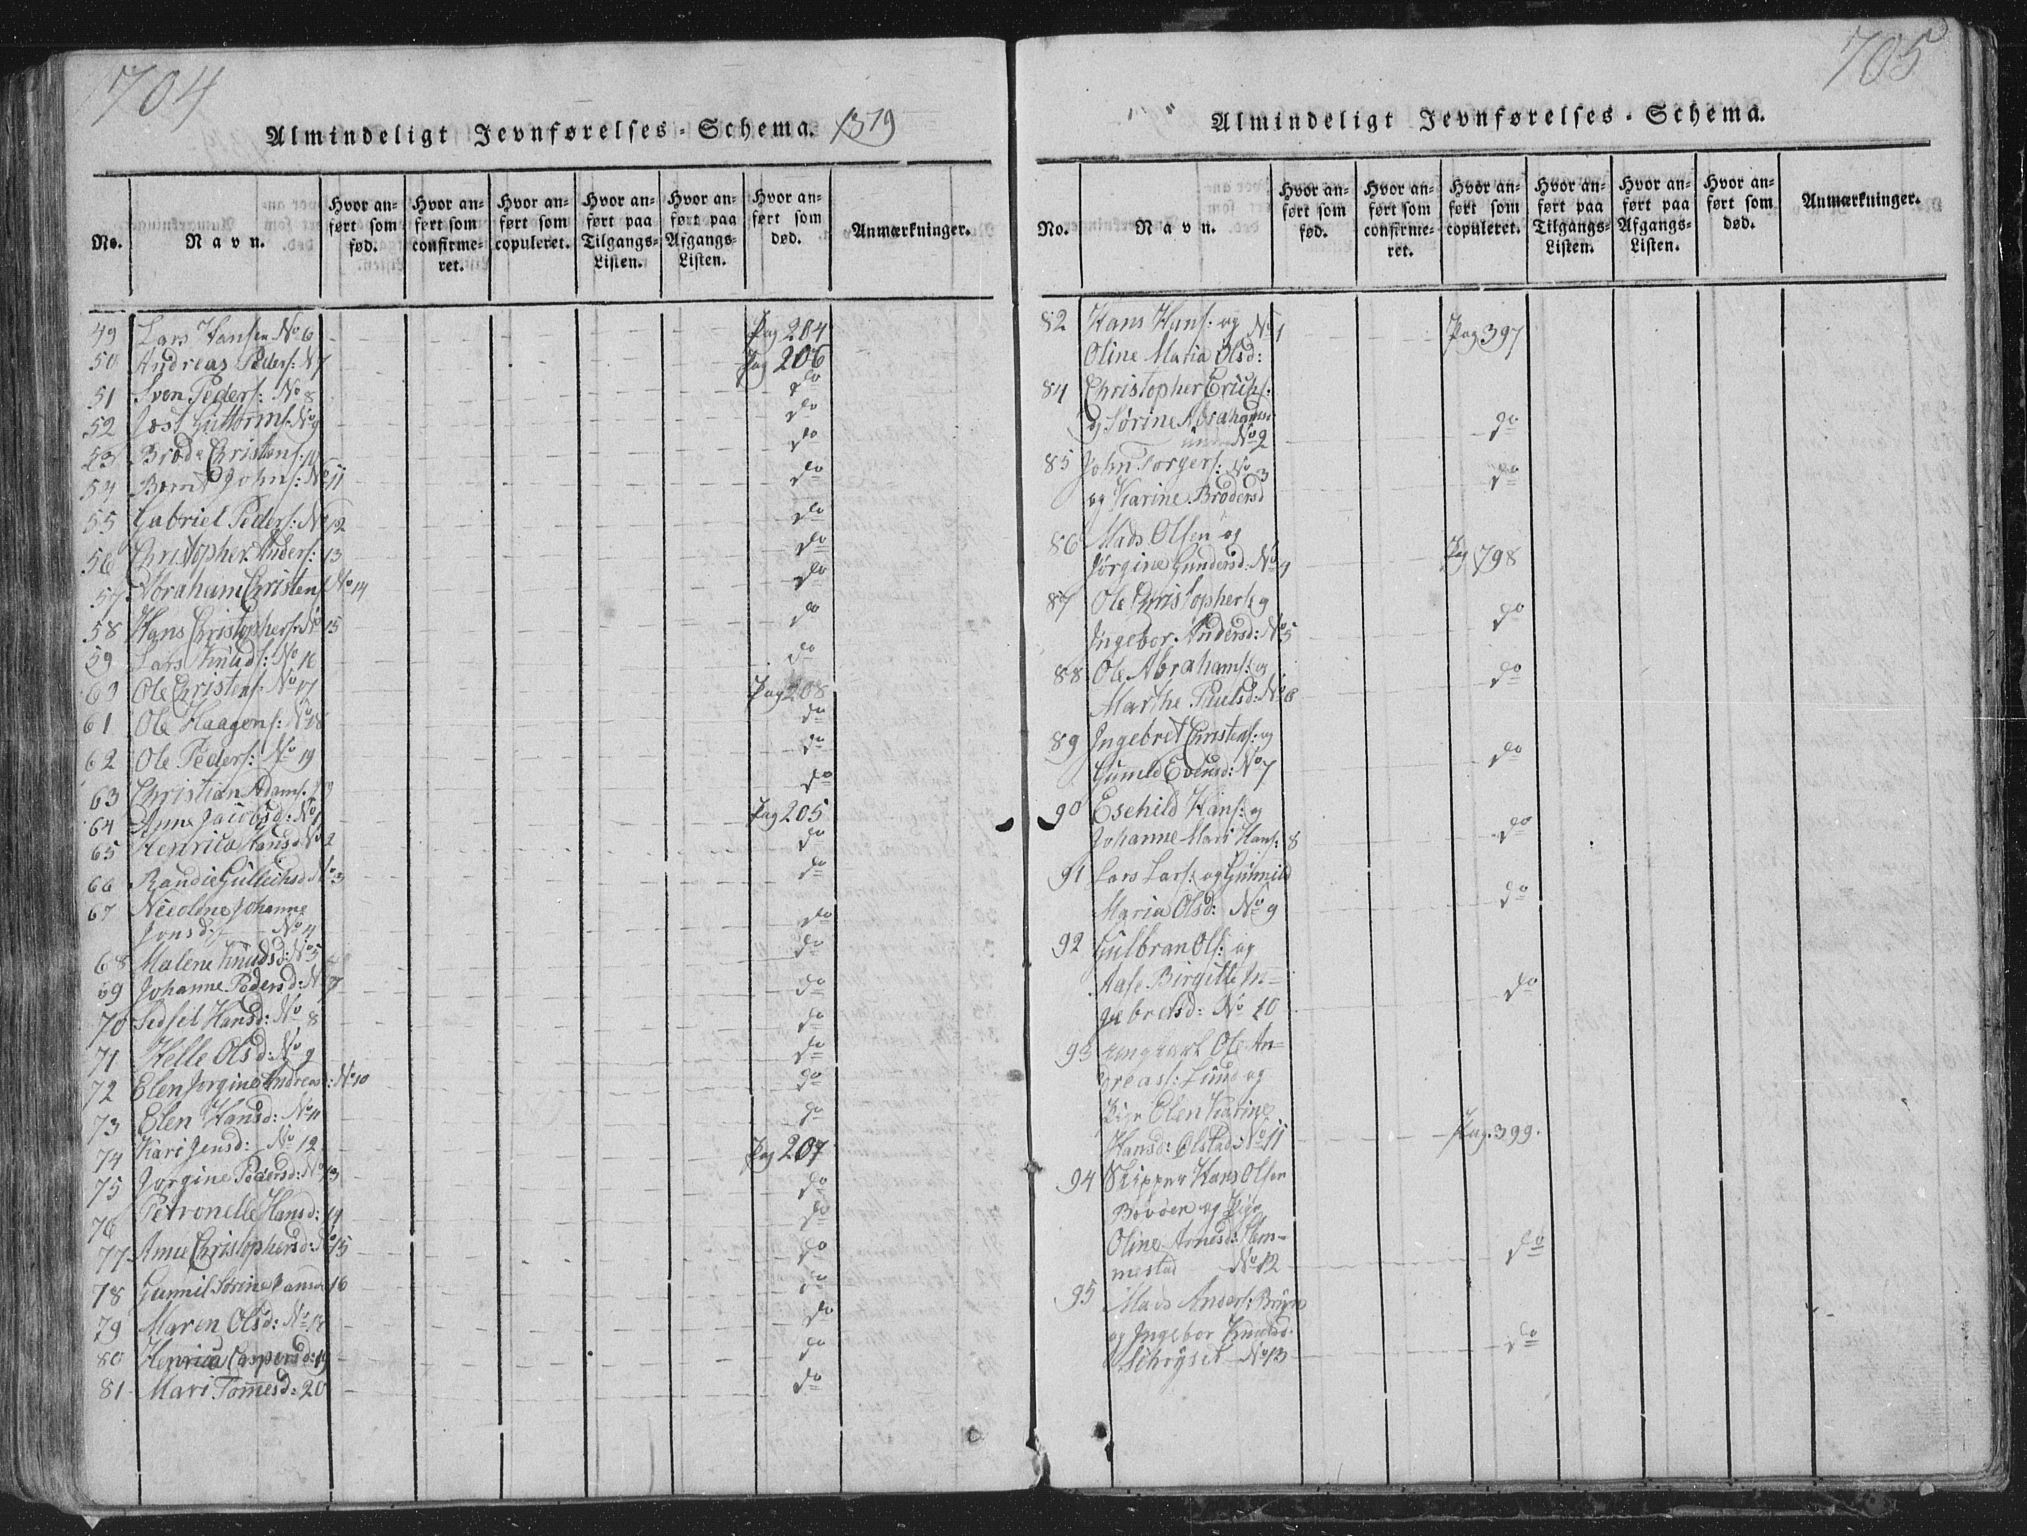 704
Almindeligt Jevnførelses-Schema. 1819
No.
Navn.
Hvor an-
ført som
fød.
Hvor an-
ført som
confirme-
ret.
Hvor an-
ført som
copuleret.
Hvor an-
ført paa
Tilgangs-
Listen.
Hvor an-
ført paa
Afgangs-
Listen.
Hvor an-
ført som
død.
Anmærkninger.
49 Lars Hansen No 6 Pag 204
50 Andreas Peders: N 7 Pag 206
51 Sven Peders: No 8 do
52 Jost Guttorms: No 9 do
53 Brode Christens: 10 do
54 Bernt Johns: No 11 do
55 Gabriel Peders: No 12 do
56 Christopher Anders: 13 do
57 Abraham Christens No 14 do
58 Hans Christophers: No 15 do
59 Lars Knuds: No 16 do
60 Ole Christens: No 17 Pag 208
61 Ole Haagens: No 18 do
62 Ole Peders: No 19 do
63 Christian Adams: do
64 Anne Jacobsd: No 1 Pag 205
65 Henrica Hansd No 2 do
66 Randie Gullichsd No 3 do
67 Nicoline Johanne
Jonsd: No 4 do
68 Malene Knudsd: No 5 do
69 Johanne Pedersd: No 7 do
70 Sedsel Hansd: No 8 do
71 Helle Olsd: No 9 do
72 Elen Jorgine Andreas: No 10 do
73 Elen Hansd: No 11 do
74 Kari Jensd: No 12 Pag 207
75 Jorgine Pedersd: No 13 do
76 Petronelle Hansd: 14 do
77 Anne Christophersd: No 15 do
78 Gunnil Sørine Hansd 16 do
79 Maren Olsd: No 18 do
80 Henrica Caspersd: 19 do
81 Mari Tomesd: 20 do
705
Almindeligt Jevnførelses-Schema.
No.
Navn.
Hvor an-
ført som
fød.
Hvor an-
ført som
confirme-
ret.
Hvor an-
ført som
copuleret.
Hvor an-
ført paa
Tilgangs-
Listen.
Hvor an-
ført paa
Afgangs-
Listen.
Hvor an-
ført som
død.
Anmærkninger.
82 Hans Hans: og No 1 Pag 397
Oline Maria Olsd:
84 Christopher Erichs:
og Sørine Abrahams:
No 2 do
85 John Torgers: No 3 do
og Karine Brodersd
86 Mads Olsen og
Jørgine Gundersd: No 4 Pag 798
87 Ole Christophers og
Ingebor Andersd: No 5 do
88 Ole Abrahams: og
Marthe Paulsd: No 6 do
89 Ingebret Christens: og
Gunild Evensd: No 7 do
90 Eschild Hans: og
Johanne Mari Hans: 8 do
91 Lars Lars: og Gunnild
Maria Olsd: No 9 do
92 Gulbran Ols: og
Aase Birgitte In-
gebretsd: No 10 do
93 Ole An-
dreas: Lund og
Pige Elen Karine
Hansd: Olstad No 11 Pag. 399.
94 Skipper Hans Olsen
og Pige
Oline Arnesd: Slem-
mestad No 12 do
95 Mads Anders: Bruun
og Ingebor Knudsd.
No 13 do